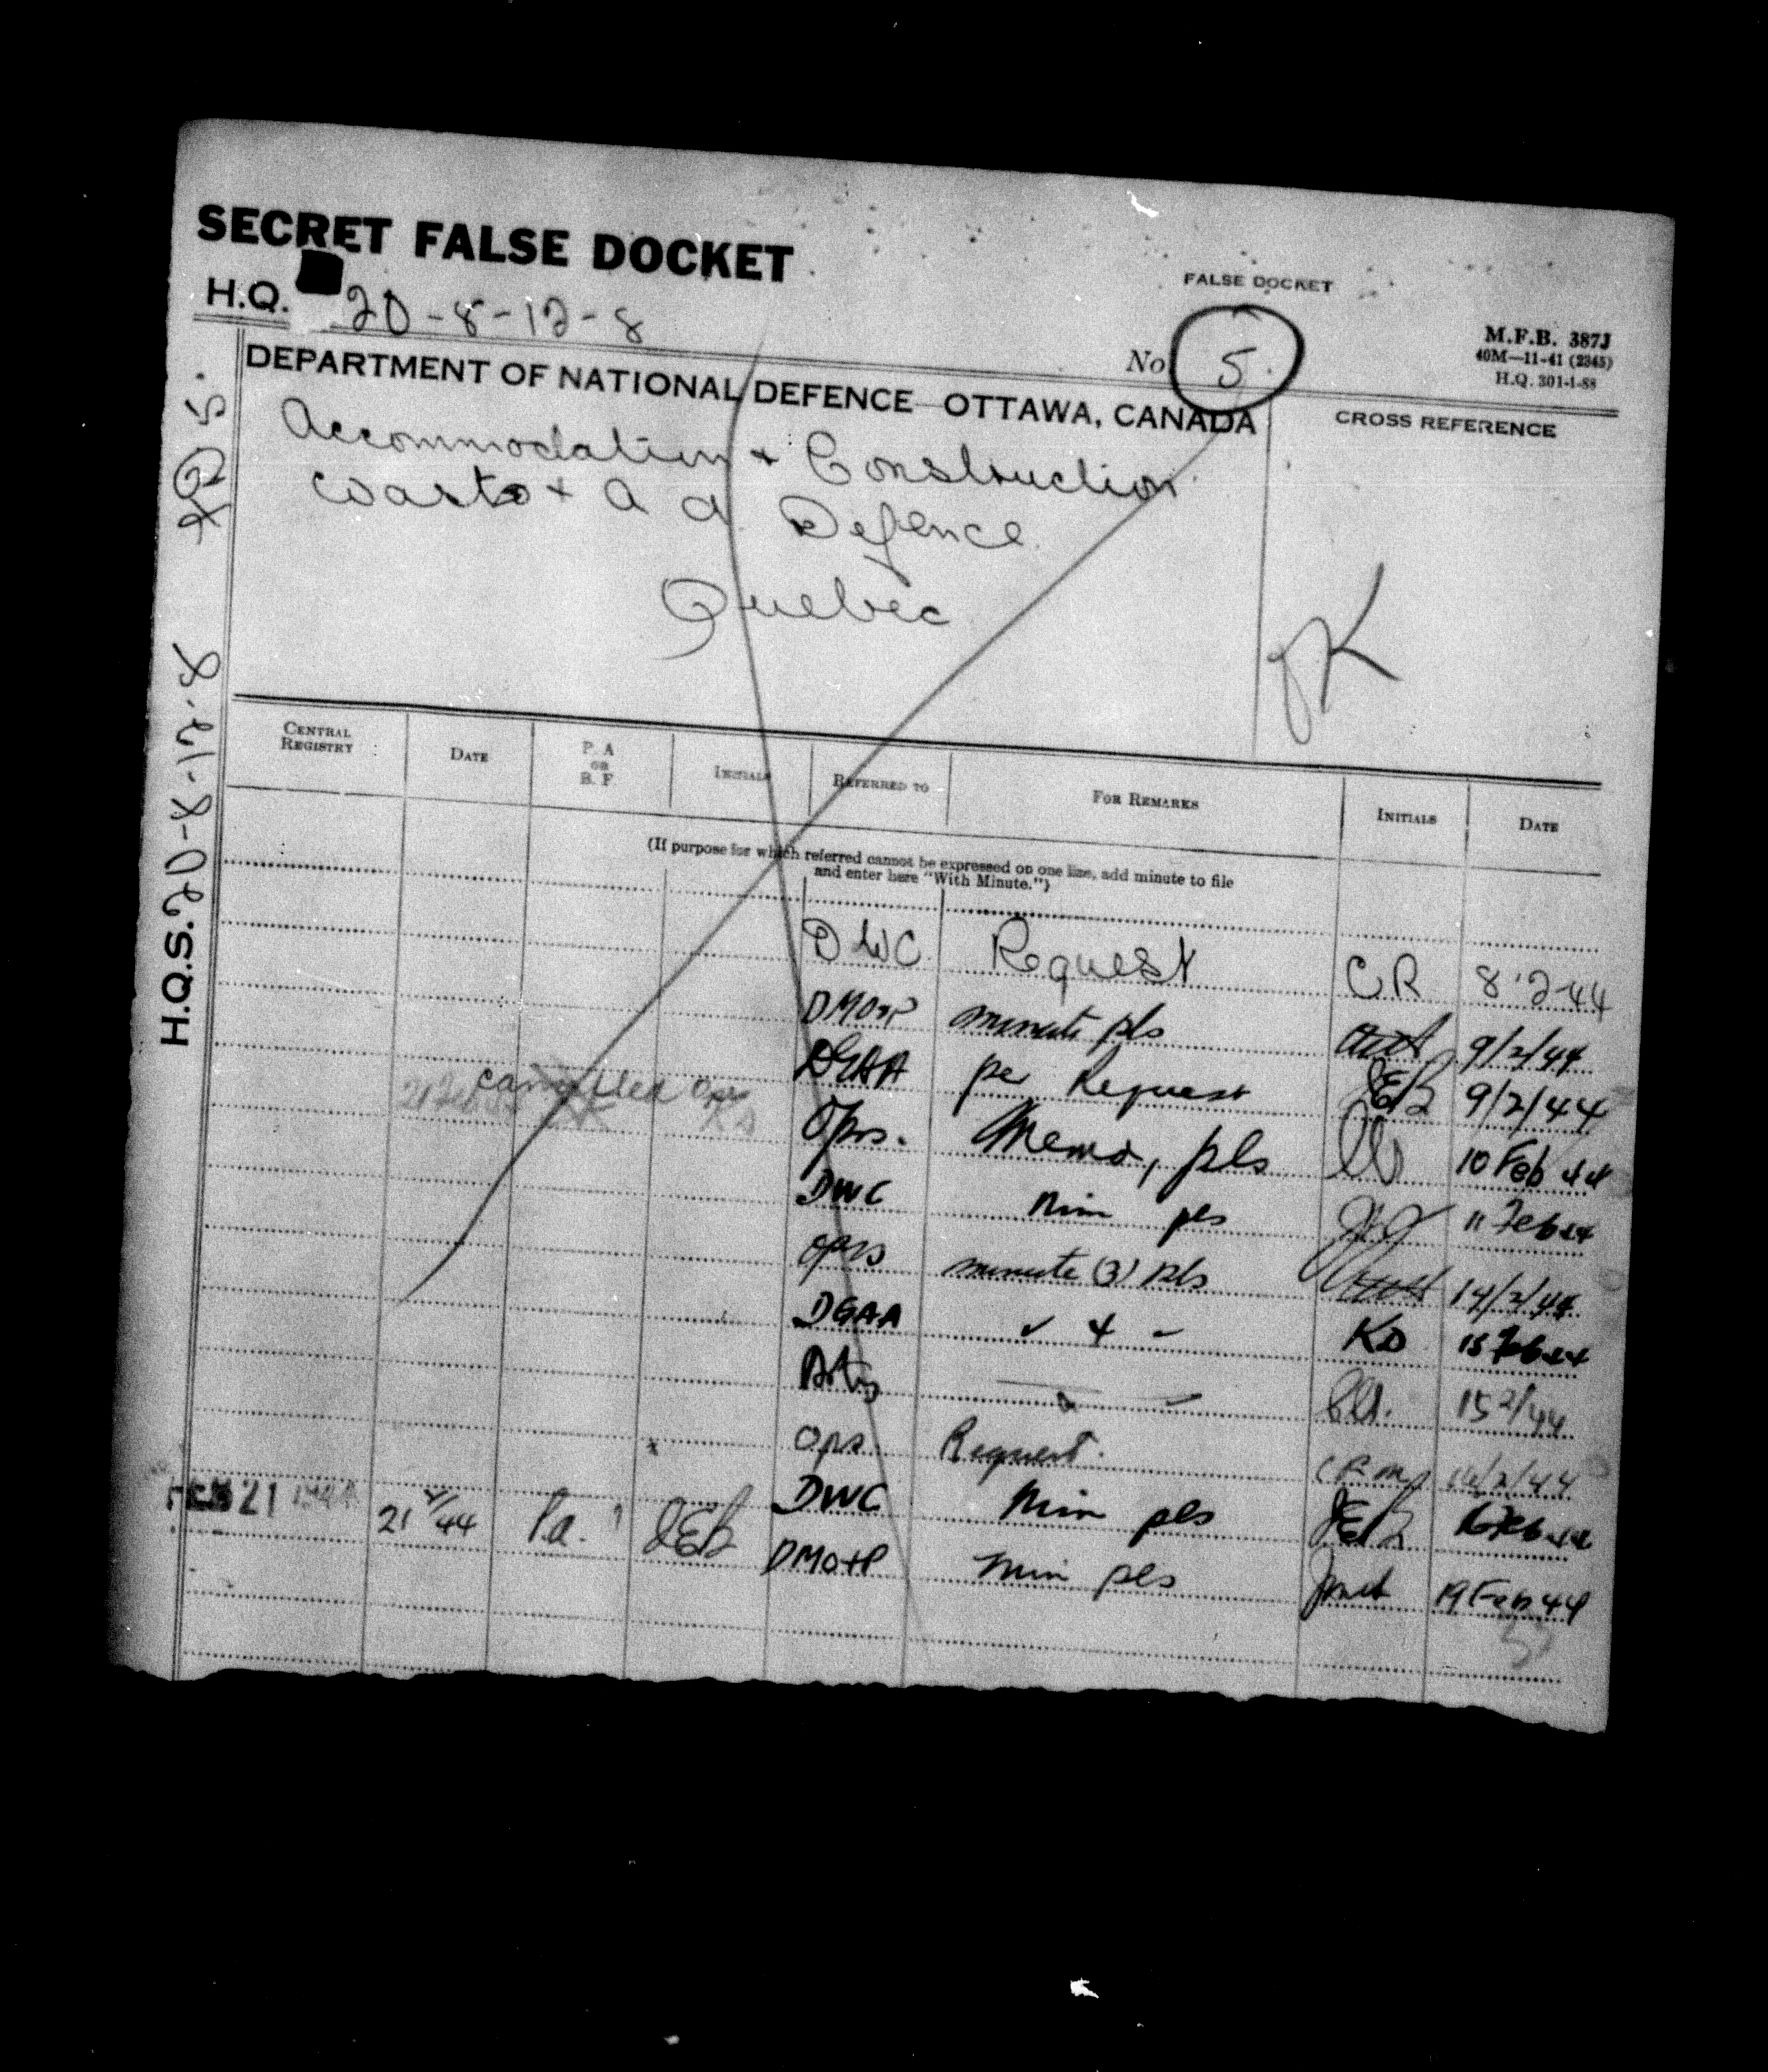 SECRET FALSE DOCKET
FALSE DOCKET
H.Q. 20-8-12-8
No 5.
M.F.B. 387J
40M—11-41 (2345)
H.Q. 301-1-88
DEPARTMENT OF NATIONAL DEFENCE OTTAWA, CANADA
CROSS REFERENCE
Accommodation + Construction
Coast + A A Defence
Quebec
H.Q.S. 20-8-12-8 FD 5.
CENTRAL REGISTRY DATE P. A OR B. F INITIALS REFERRED TO FOR REMARKS INITIALS DATE
(If purpose for which referred cannot be expressed on one line, add minute to file
and enter here "With Minute.")
DWC Request CR 8-2-44
DMO+P minute pls 9/2/44
DGAA per Request JEB 9/2/44
cancelled
Oprs. Memo, pls 10 Feb 44
DWC Min pls 11 Feb 44
oprs minute (3) pls 14/2/44
DGAA ✓ + - KD 15 Feb 44
15 2/44
Ops Request. 16/2/44
FEB 21 1944 DWC Min pls JEB 16 Feb 44
21 2/44 Pa. JEB DMO+P Min pls 19 Feb 44